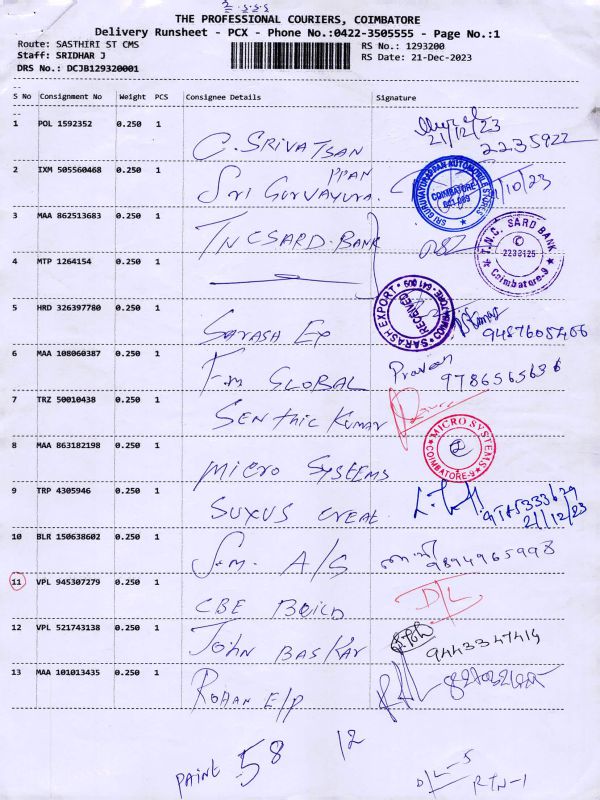 THE PROFESSIONAL COURIERS, COIMBATORE
Delivery Runsheet - PCX - Phone No.:0422-3505555 - Page No.:1
Route: SASTHIRI ST CMS
RS No.: 1293200
Staff: SRIDHAR J
RS Date: 21-Dec-2023
DRS No.: DCJB129320001
S No Consignment No Weight PCS Consignee Details Signature
1 POL 1592352 0.250 1
21/12/23
C. SRIVATSAN 2235922
2 IXM 505560468 0.250 1
PPAN
Sri GURVAYURA.
SRI GURUVAYURAPPAN AUTOMOBILE STORES
COIMBATORE
641 009
3 MAA 862513683 0.250 1
TNCSARD.BANK
T.N.C. SARD BANK
Coimbatore-9
4 MTP 1264154 0.250 1
SARASH EXPORT
RECEIVED
COIMBATORE - 641 009
5 HRD 326397780 0.250 1
Sarash Ex
6 MAA 108060387 0.250 1
F.m GLOBAL
Praveen
9786565636
7 TRZ 50010438 0.250 1
SENTHIL KUMAR
8 MAA 863182198 0.250 1
MICRO SYSTEMS
MICRO SYSTEMS
COIMBATORE-9
9 TRP 4305946 0.250 1
SUXUS CREAT
21/12/23
10 BLR 150638602 0.250 1
S.m. A/S
9894965998
11 VPL 945307279 0.250 1
CBE BUILD
D/L
12 VPL 521743138 0.250 1
JOHN BASKAR
9443347414
13 MAA 101013435 0.250 1
ROHAN E/P
58 12
D/L-5
RTN-1